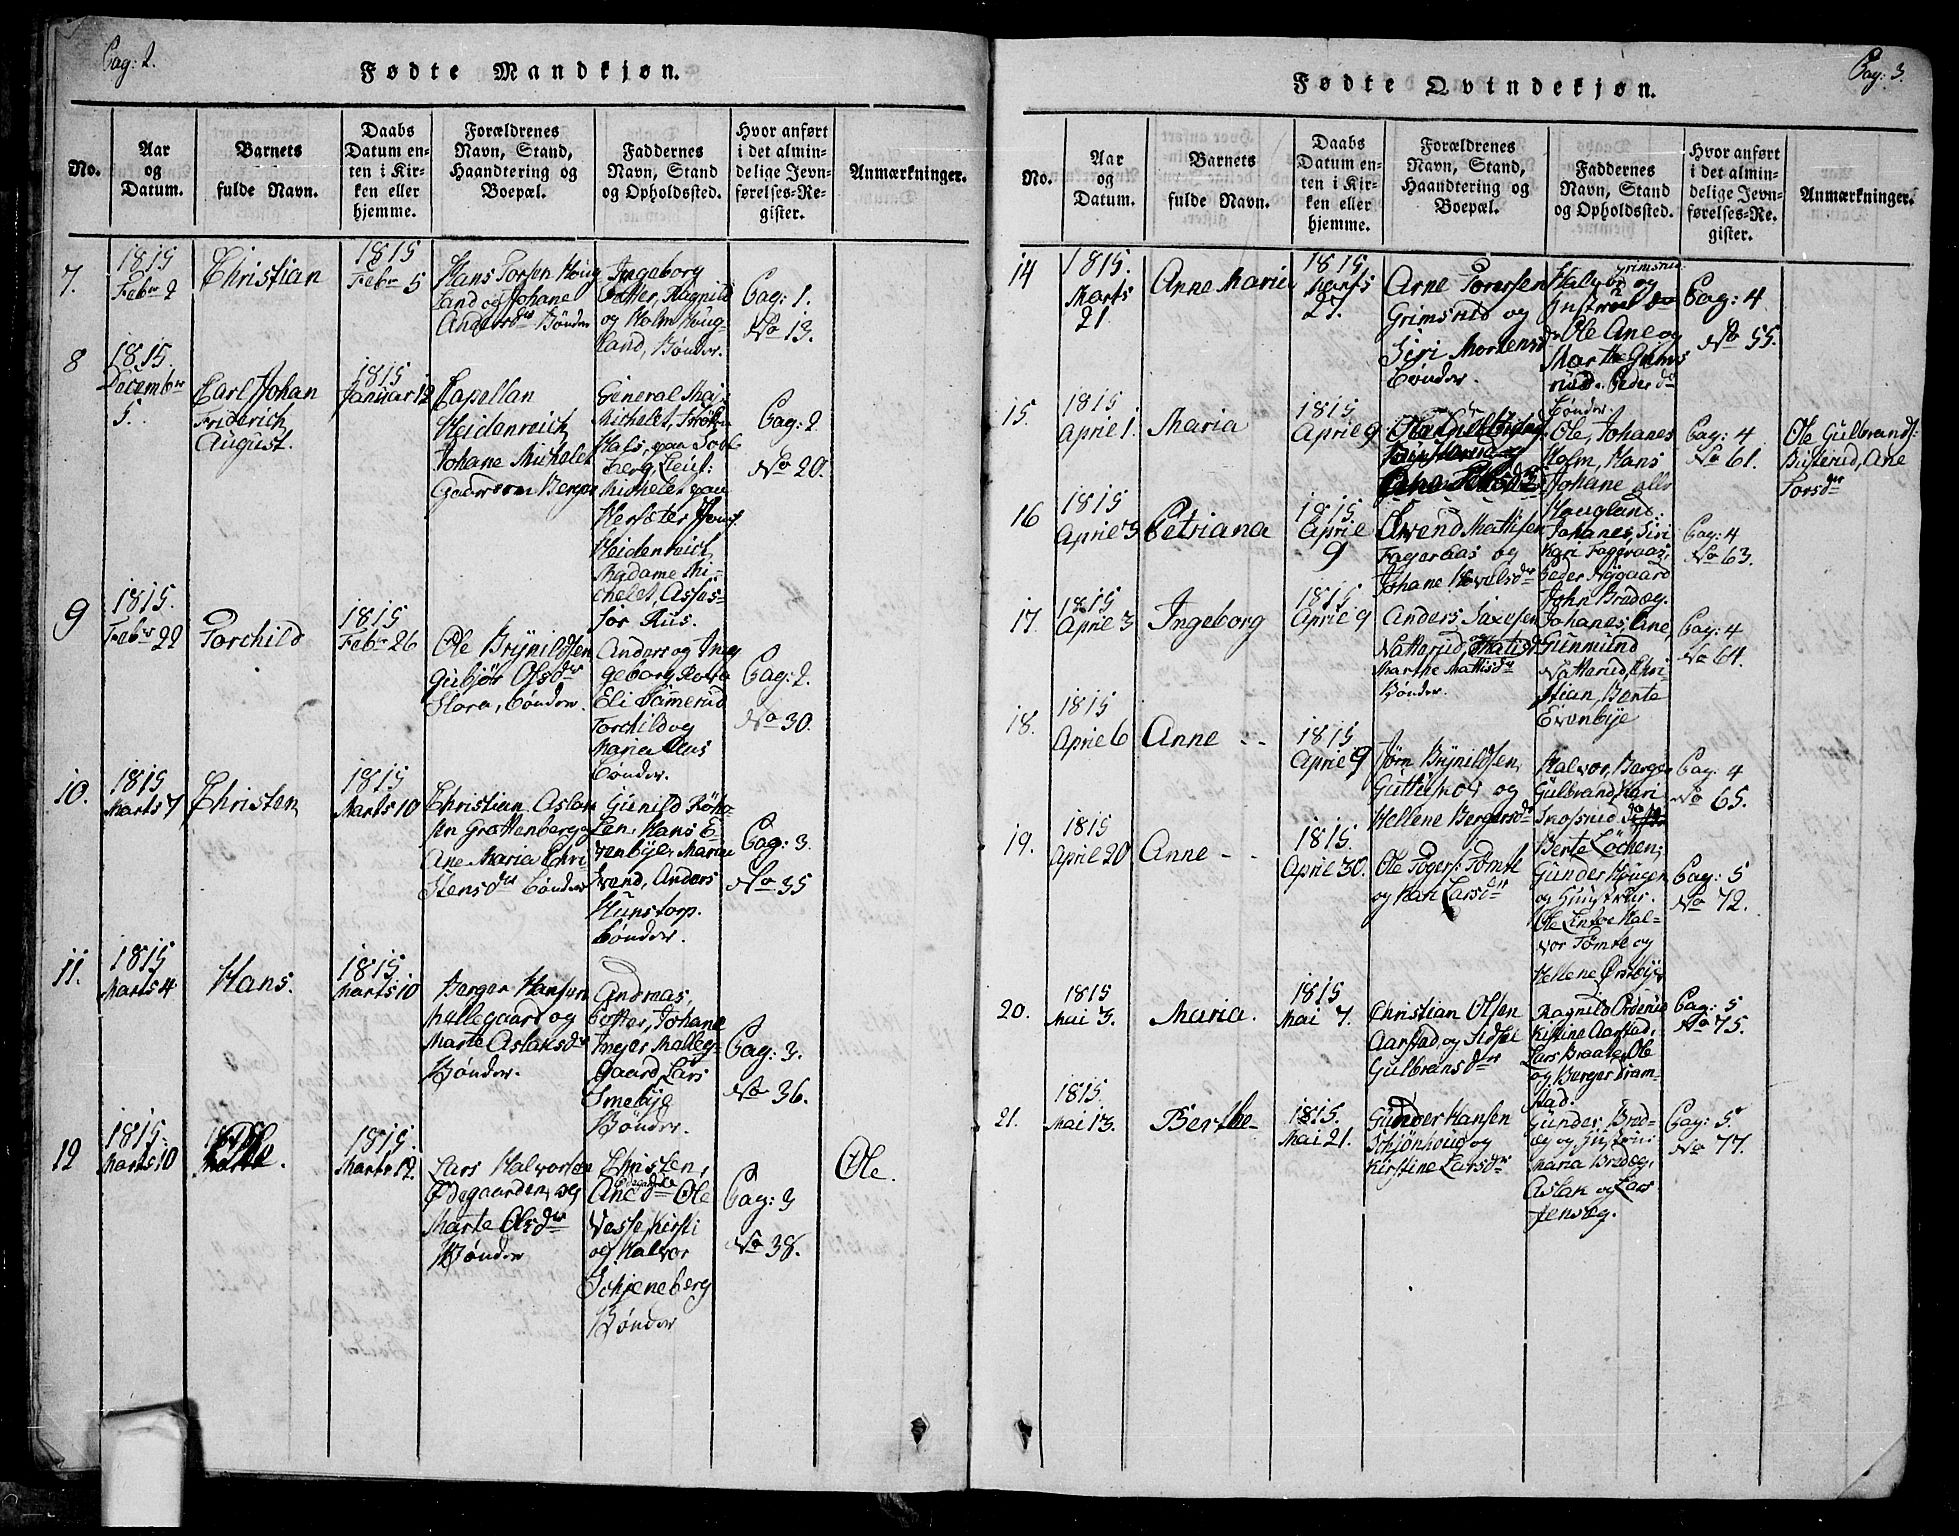 Pag: 2.
Fødte Mandkjøn.
No.
Aar
og
Datum.
Barnets
fulde Navn.
Daabs
Datum en-
ten i Kir-
ken eller
hjemme.
Forældrenes
Navn, Stand,
Haandtering og
Boepæl.
Faddernes
Navn, Stand
og Opholdssted.
Hvor anført
i det almin-
delige Jevn-
førelses-Re-
gister.
Anmærkninger.
7.
1815
Febr 2
Christian
1815
Febr 5
Hans Torsen Houg
land og Johane
Andersdr Bönder
Ingeborg
Potter, Ragnild
og Holm Houg-
land, Bönder.
Pag: 1.
No 13.
8
1815.
Decembr
5.
Carl Johan
Friderich
August.
1815
Januar 12
Capellan
Heidenreich
Johane Michelet
Gaarden Berger
General Ma-
Michelet,
Leut:
Michelet paa
Heidenreich
Madame Mi-
chelet, Asses-
sor Rus.
Pag: 2
No 20.
9
1815.
Febr 22
Torchild
1815
Febr 26
Ole Brynildsen
Gubjör Olsdr
Slora, Bönder.
Anders og Ing
geborg
Eli Sämerud
Torchild og
Maria Aus
Bönder.
Pag: 2.
No 30.
10.
1815
Marts 7
Christen
1815
Marts 10
Christian Aslak
sen Grottenberg og
Ane Maria Chri
stensdr Bönder
Gunild Röho
len, Hans E-
venbye, Maria
Svend, Anders
Hunstorp.
Bönder.
Pag: 3.
No 35
11.
1815
Marts 4
Hans.
1815
Marts 10
Berger Hansen
Mellegaard og
Marte Aslaksdr
Bönder.
Andreas,
Potter, Johane
Inger Melleg-
gaard Lars
Smebye
Bönder.
Pag: 3.
No 36.
12
1815.
Marts 10
1815.
Marts 12.
Lars Halvorsen
Ødegaarden, og
Marte Olsdr
Bönder
Christen,
Ane do Ole
Vesse, Kirsti
og Halvor
Schjeneberg
Bönder
Pag: 3
No 38.
Ole.
Pag: 3.
Fødte Qvindekjøn.
No.
Aar
og
Datum.
Barnets
fulde Navn.
Daabs
Datum en-
ten i Kir-
ken eller
hjemme.
Forældrenes
Navn, Stand,
Haandtering og
Boepæl.
Faddernes
Navn, Stand
og Opholdssted.
Hvor anført
i det almin-
delige Jevn-
førelses-Re-
gister.
Anmærkninger.
14
1815.
Marts
21.
Anne Maria
1815
Marts
27.
Arne Torersen
Grimsrud og
Siri Mortensdr
Bönder.
Grimsrud
Halvor og
Hustrue do
Ole Ane og
Marthe Grims
rud. Peder do
Bönder
Pag: 4
No 55.
15.
1815
Aprie 1.
Maria
1815
Aprie 9
Ole, Johanes
Holm, Hans
Johane alle
Hougland.
Pag: 4
No 61.
Ole Gulbrands:
Bisterud, Ane
Torsdr
16
1815
Aprie 3
Petriana
1815.
Aprie
9
Svend Mattisen
Fageraas og
Johane Hovelsdr
Johanes, Siri
Kari Fageraas,
Peder Nygaard
Pag: 4
No 63.
17.
1815
Aprie 3
Ingeborg
1815
Aprie 9
Anders Saxesen
Natterud,
Marthe Mattisdr
Bönder.
John Bradeg.
Johanes, Ane,
Gunmund
Natterud, Chri
stian, Bente
Evenbye
Pag: 4
No 64.
18.
1815
Aprie 6
Anne - -
1815
Aprie 9
Jörn Brynildsen,
og
Hellene Bergersdr
Halvor, Berger
Gulbrand, Kari
Skofsrud
Pag: 4
No 65.
19.
1815
April 20
Anne - -
1815.
April 30.
Ole Togers: Tömte
og Kari Larsdr
Berte Löchen,
Gunder Hougen
og Hustrue.
Ole Lintoe Hal-
vor Tömte og
Hellene Örsebye
Pag: 5
No 72.
20.
1815
Mai 3.
Maria.
1815
Mai 7.
Christian Olsen
Aarstad, og Sidsel
Gulbransdr
Ragnild Orderud
Kistine Aarstad,
Lars Braate, Ole
og Berger Tram-
stad.
Pag: 5
No 75.
21.
1815.
Mai 13.
Berthe
1815.
Mai 21.
Gunder Hansen
Schjönhoug og
Kirstine Larsdr
Gunder, Brad-
eg og Hustrue
Maria Bradeg,
Aslak og Lars
Jenseg.
Pag: 5
No 77.